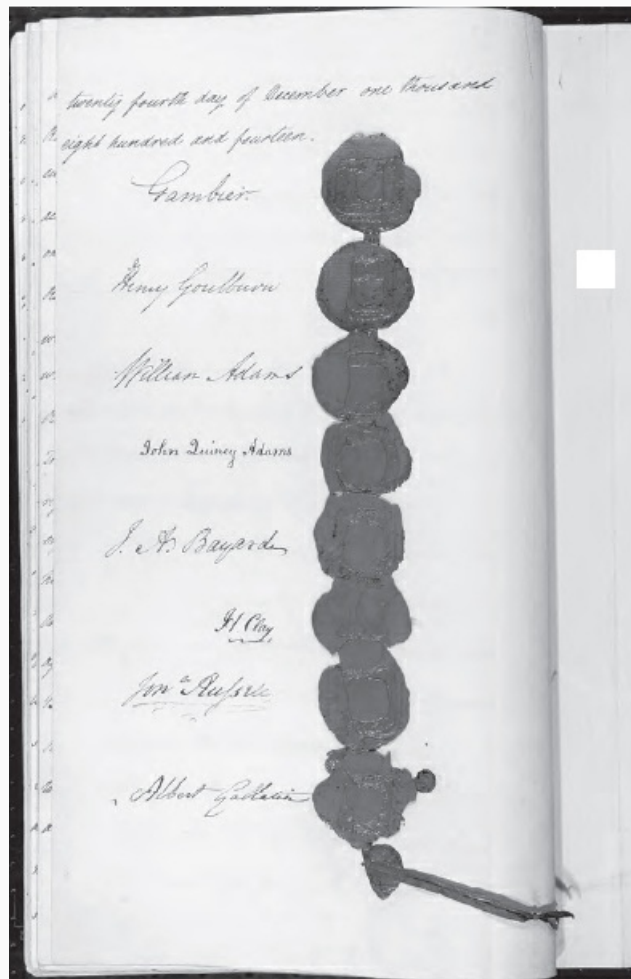 twenty fourth day of December one thousand
eight hundred and fourteen.
Gambier.
Henry Goulburn
William Adams
John Quincy Adams
J. A. Bayard
H Clay
Jon.ª Russell
Albert Gallatin